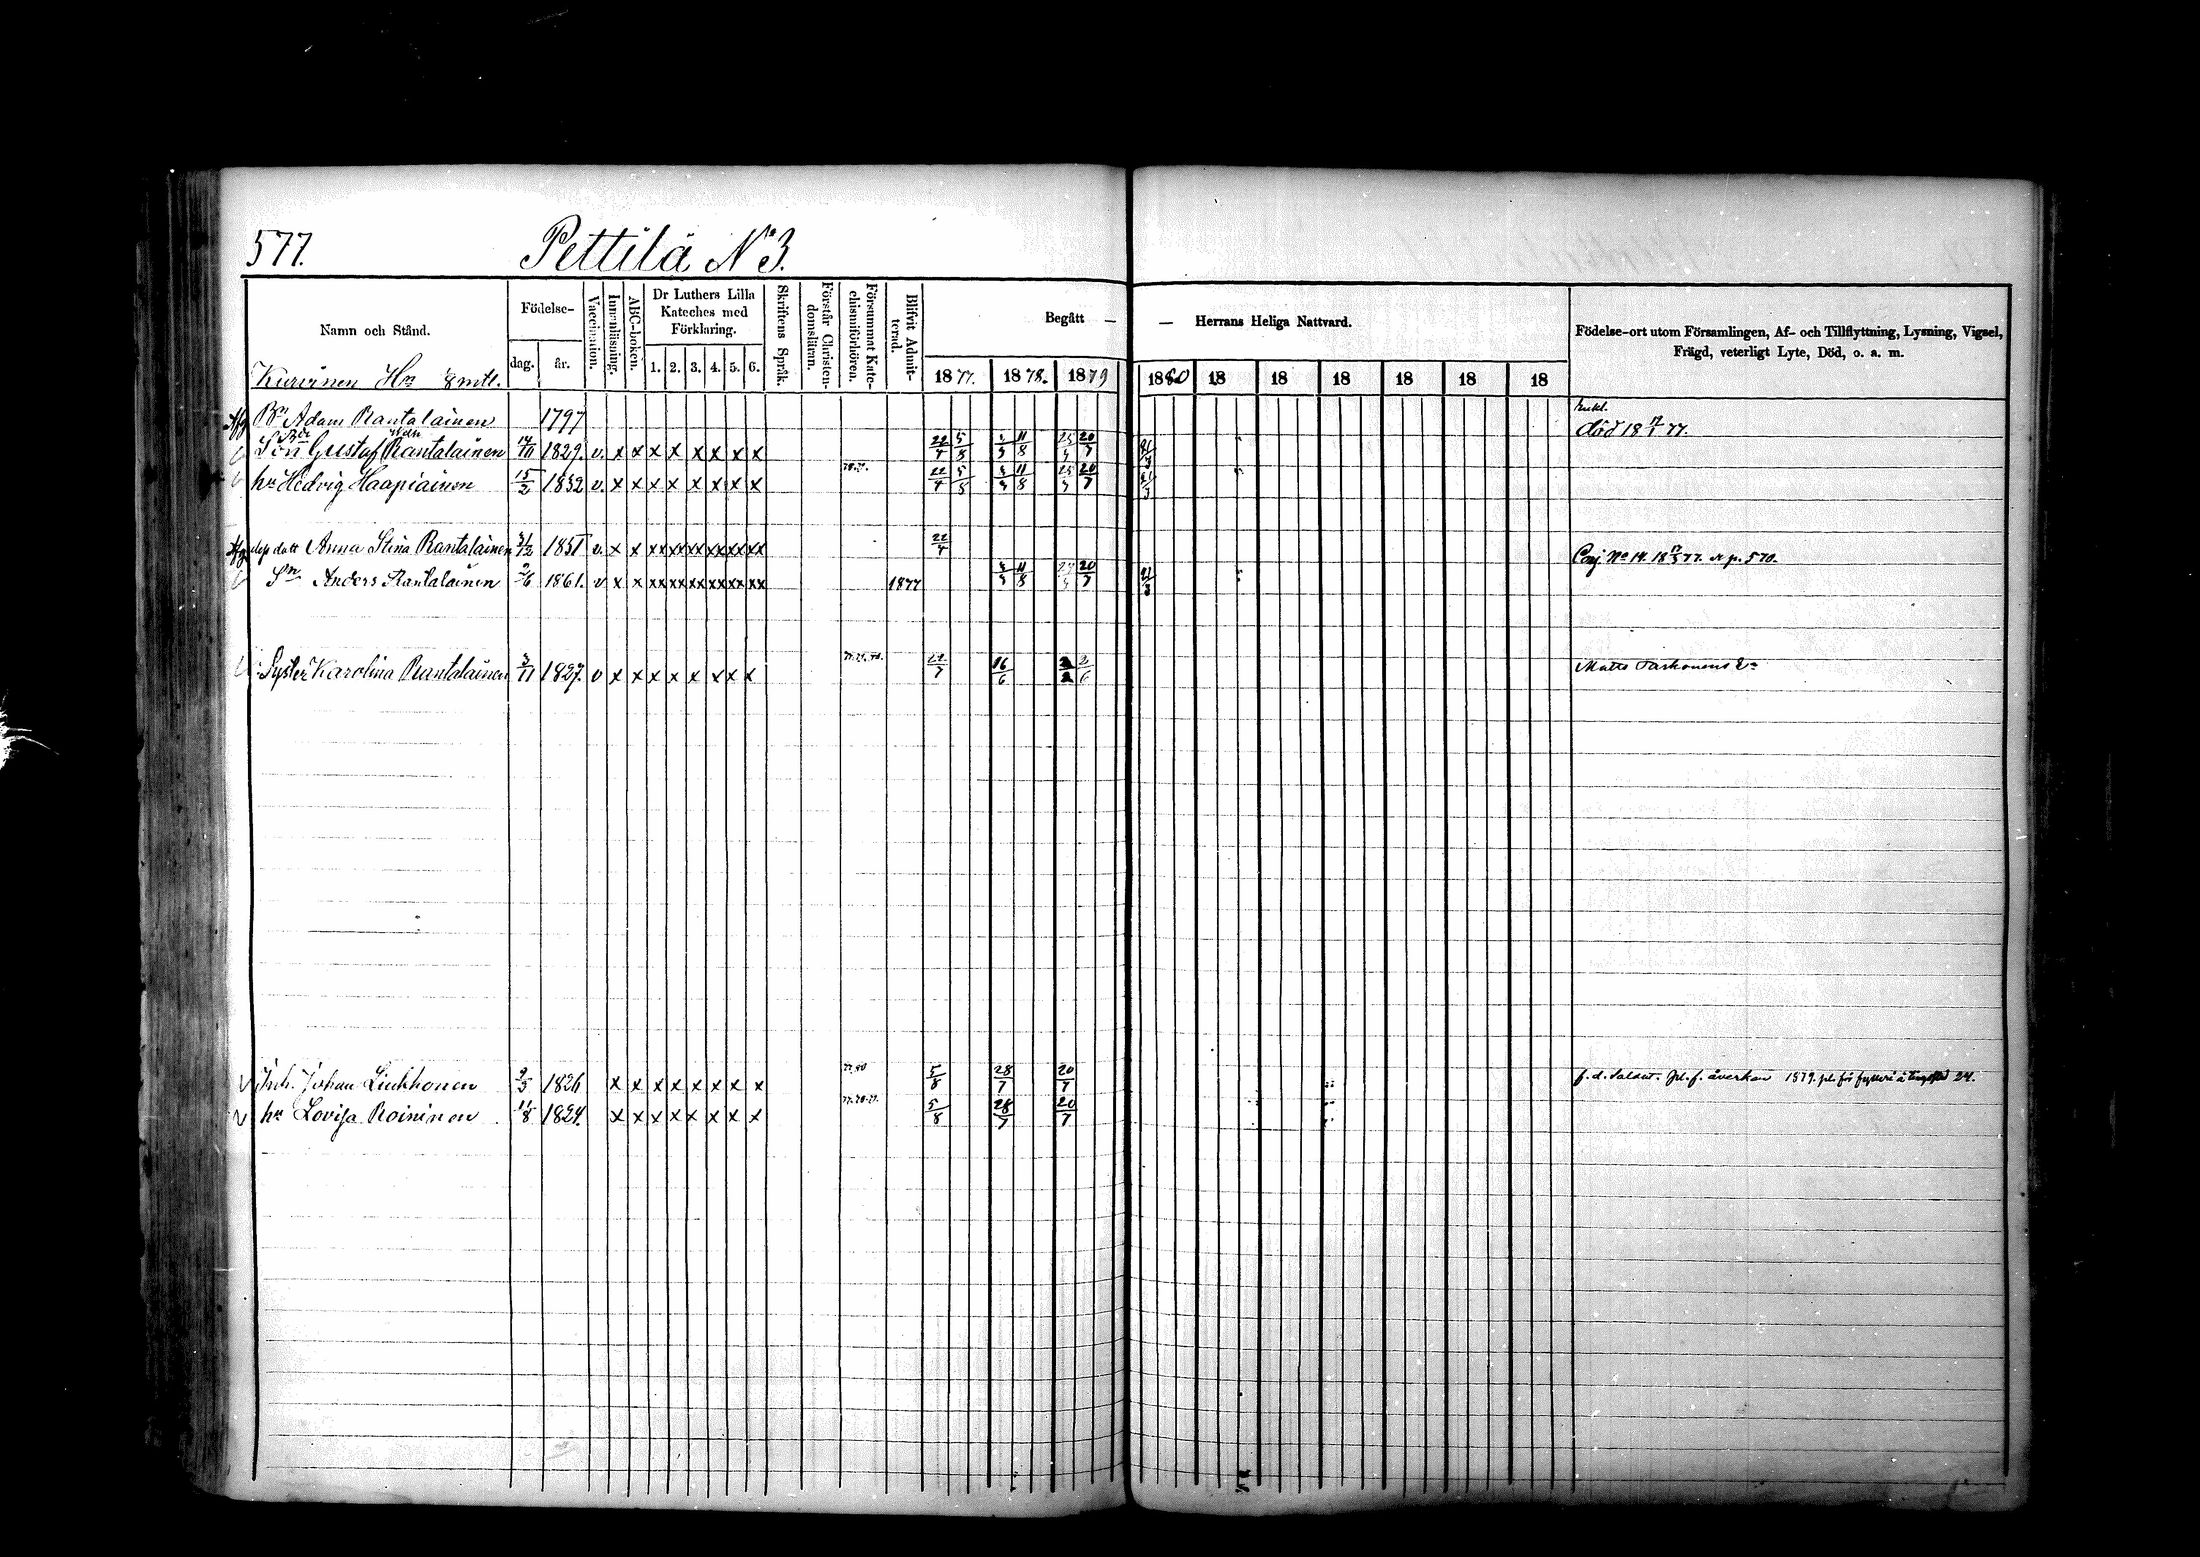 577. Pettilä N:o 3.
Namn och Stånd.
Födelse-
dag. år.
Vaccination.
Innanläsning.
ABC-boken.
Dr Luthers Lilla
Kateches med
Förklaring.
1. 2. 3. 4. 5. 6.
Skriftens Språk.
Förstår Christen-
domsläran.
Försummat Kate-
chismiförhören.
Blifvit Admit-
terad.
Begått — — Herrans Heliga Nattvard.
1877. 1878. 1879 1880 18 18 18 18 18 18
Födelse-ort utom Församlingen, Af- och Tillflyttning, Lysning, Vigsel,
Frägd, veterligt Lyte, Död, o. a. m.
Kurvinen
Adam Rantalainen 1797 Enkl. död 18 77.
Son Gustaf Rantalainen 14/10 1829. v. x x x x x x x x 22/4 5/8 11/8 20/7
hu Hedvig Haapiainen 15/2 1832 v. x x x x x x x x 22/4 5/8 11/8 20/7
dess dott Anna Stina Rantalainen 31/12 1851 v. x x xx xx xx xx xx xx 22/4 Conj. No 14. 18 77. p. 570.
Sn Anders Rantalainen 1861. v x x xx xx xx xx xx xx 1877 11/8 20/7
Syster Karolina Rantalainen 3/11 1827. v x x x x x x x x 16/6
Inh. Johan Liukkonen 9/5 1826 x x x x x x x x 77.80 5/8 28/7 20/7 f. d. Soldat. 1879. 24.
hu Lovisa Roininen 11/8 1824. x x x x x x x x 5/8 28/7 20/7